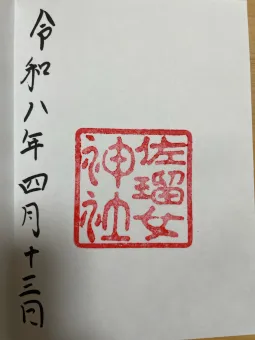 令和八年四月十三日
佐瑠女
神社